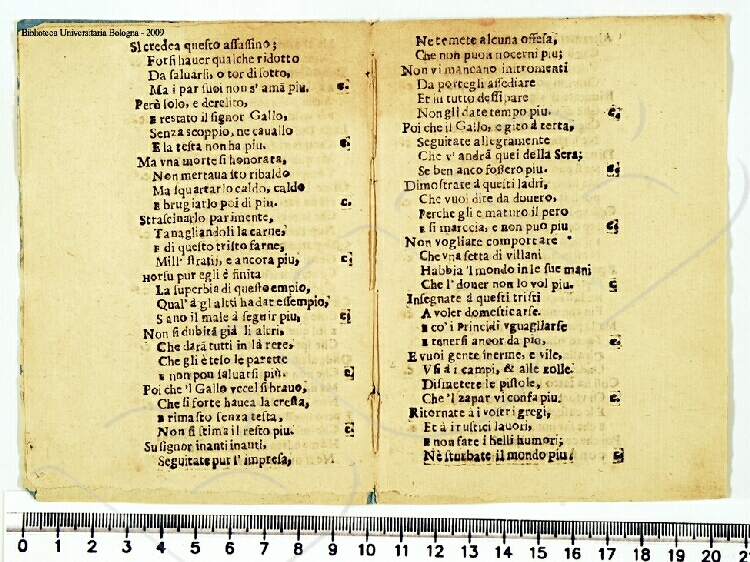 Biblioteca Universitaria Bologna - 2009
Si credea questo assassino;
Forsi hauer qualche ridotto
Da saluarsi, o tor di sotto,
Ma i par suoi non s' amā piu. e.
Però solo, e derelito,
E restato il signor Gallo,
Senza scoppio, ne cauallo
E la testa non ha piu. e.
Ma vna morte si honorata,
Non mertaua sto ribaldo
Ma squartarlo caldo, caldo
E brugiarlo poi di piu. e.
Strascinarlo parimente,
Tanagliandoli la carne,
E di questo tristo farne,
Mill' stratij, e ancora piu, e
Horsu pur egli è finita
La superbia di questo empio,
Qual' à gl altri ha dat essempio,
Sano il male à seguir piu, e
Non si dubita già li altri,
Che darā tutti in là rete,
Che gli è teso le parette
E non pon saluarsi più. e
Poi che 'l Gallo vccel si brauo,
Che si forte hauea la cresta,
E rimasto senza testa,
Non si stima il resto piu. e
Su signor inanti inanti,
Seguitate pur l' impresa,
Ne temete alcuna offesa,
Che non puon nocerui piu;
Non vi mancano instromenti
Da potergli assediare
Et in tutto dessipare
Non gli date tempo piu. e,
Poi che il Gallo, e gito à terra,
Seguitate allegramente
Che v' andrà quei della Sera;
Se ben anco fossero piu. e,
Dimostrate à questi ladri,
Che vuoi dite da douero,
Perche gli e maturo il pero
E si marccia, e non puo piu e,
Non vogliate comportare
Che vna setta di villani
Habbia 'l mondo in le sue mani
Che l' douer non lo vol piu. e
Insegnate à questi tristi
A voler domesticarse.
E co' i Principi vguagliarse
E tenersi ancor da piò. e.
E vuoi gente inerme, e vile,
Vsi à i campi, & alle zolle.
Dismetere le pistole,
Che 'l zapar vi confa piu, e.
Ritornate à i vostri gregi,
Et à i rustici lauori,
E non fate i belli humori;
Nè sturbate il mondo piu. e,
0 1 2 3 4 5 6 7 8 9 10 11 12 13 14 15 16 17 18 19 20 21